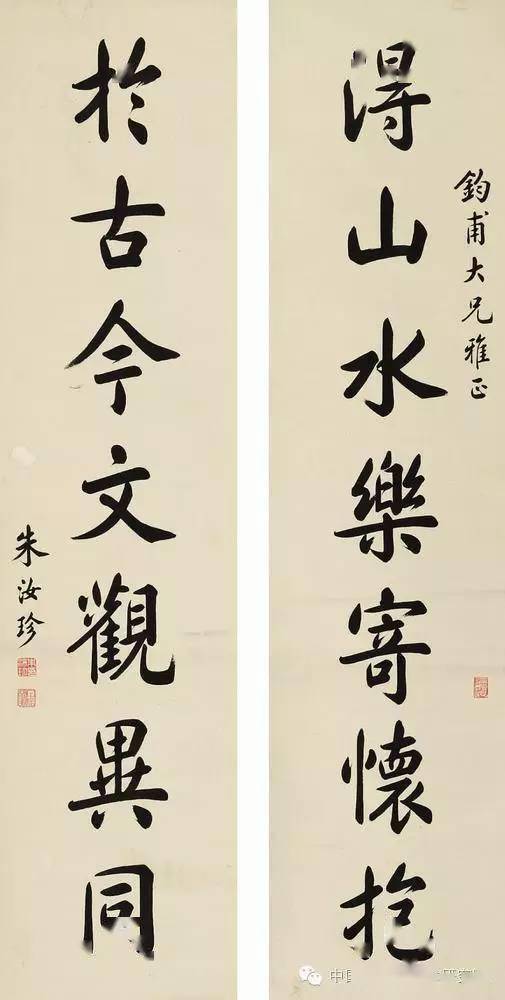 鈞甫大兄雅正
得山水樂寄懷抱
於古今文觀異同
朱汝珍